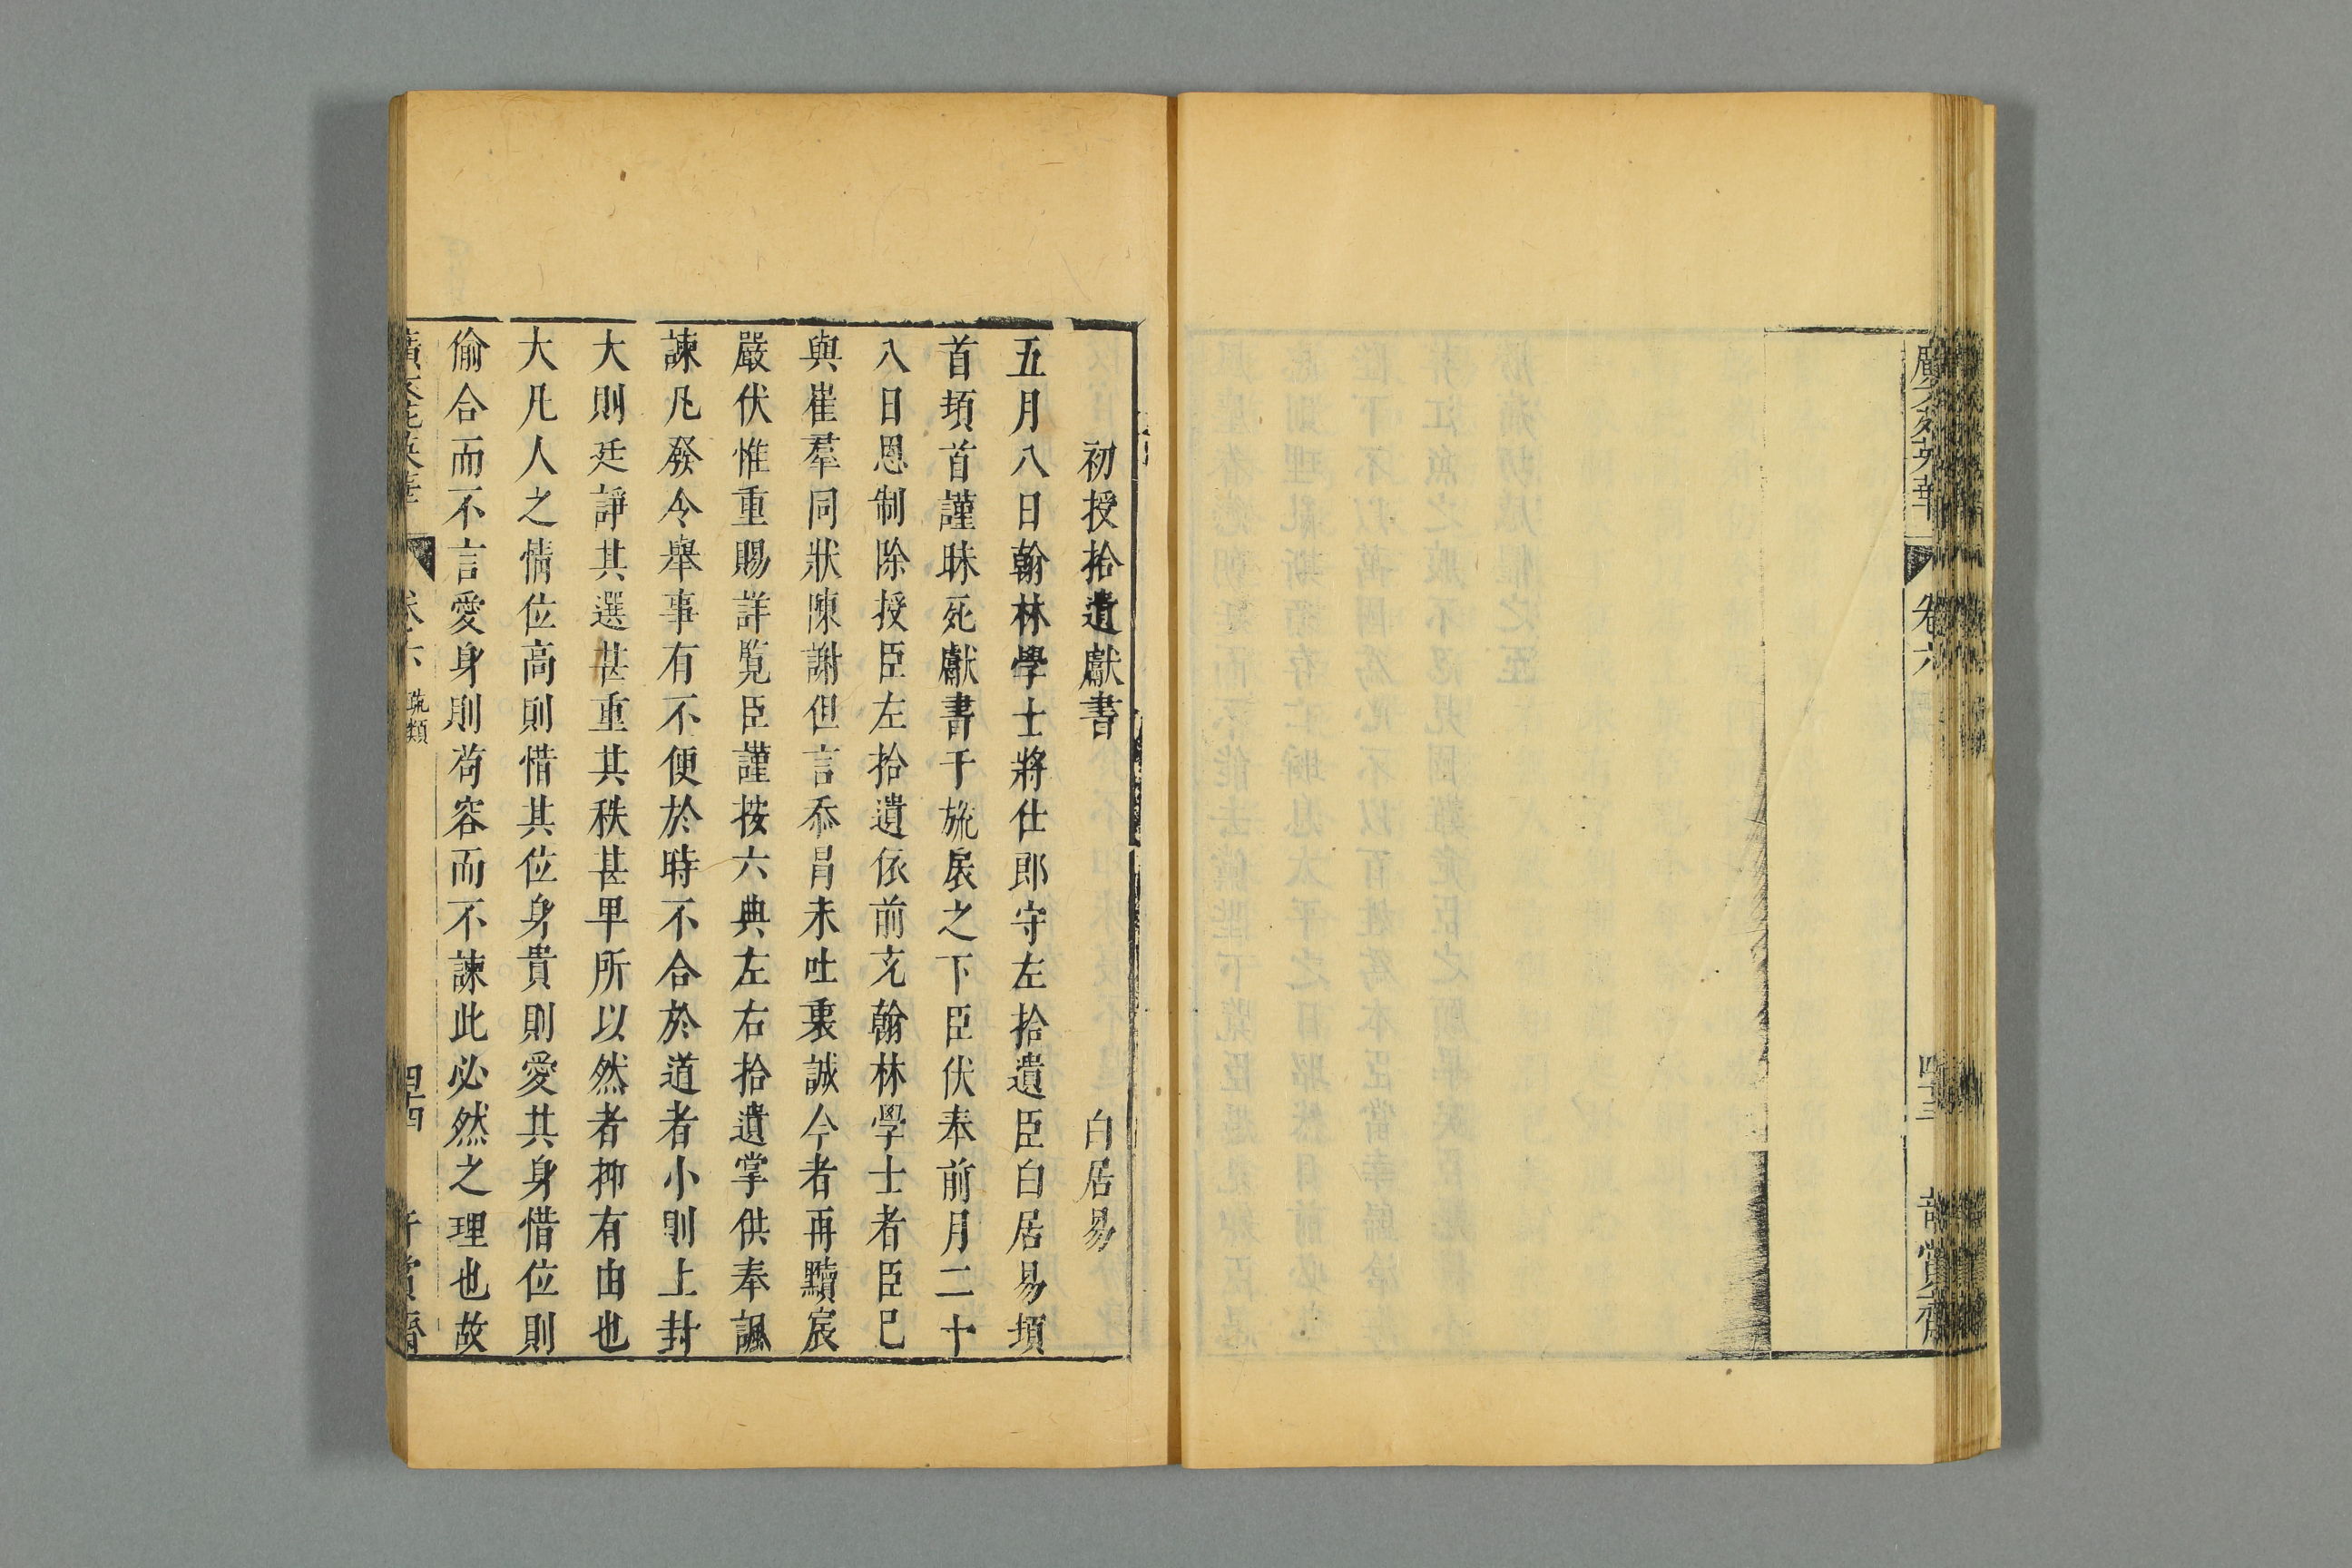 卷六
初授拾遺獻書 白居易
五月八日翰林學士將仕郎守左拾遺臣白居易頓
首頓首謹昧死獻書于旒扆之下臣伏奉前月二十
八日恩制除授臣左拾遺依前充翰林學士者臣已
與崔羣同狀陳謝但言忝冒未吐衷誠今者再黷宸
嚴伏惟重賜詳覧臣謹按六典左右拾遺掌供奉諷
諫凡發令舉事有不便於時不合於道者小則上封
大則廷諍其選甚重其秩甚卑所以然者抑有由也
大凡人之情位高則惜其位身貴則愛其身惜位則
偷合而不言愛身則苟容而不諫此必然之理也故